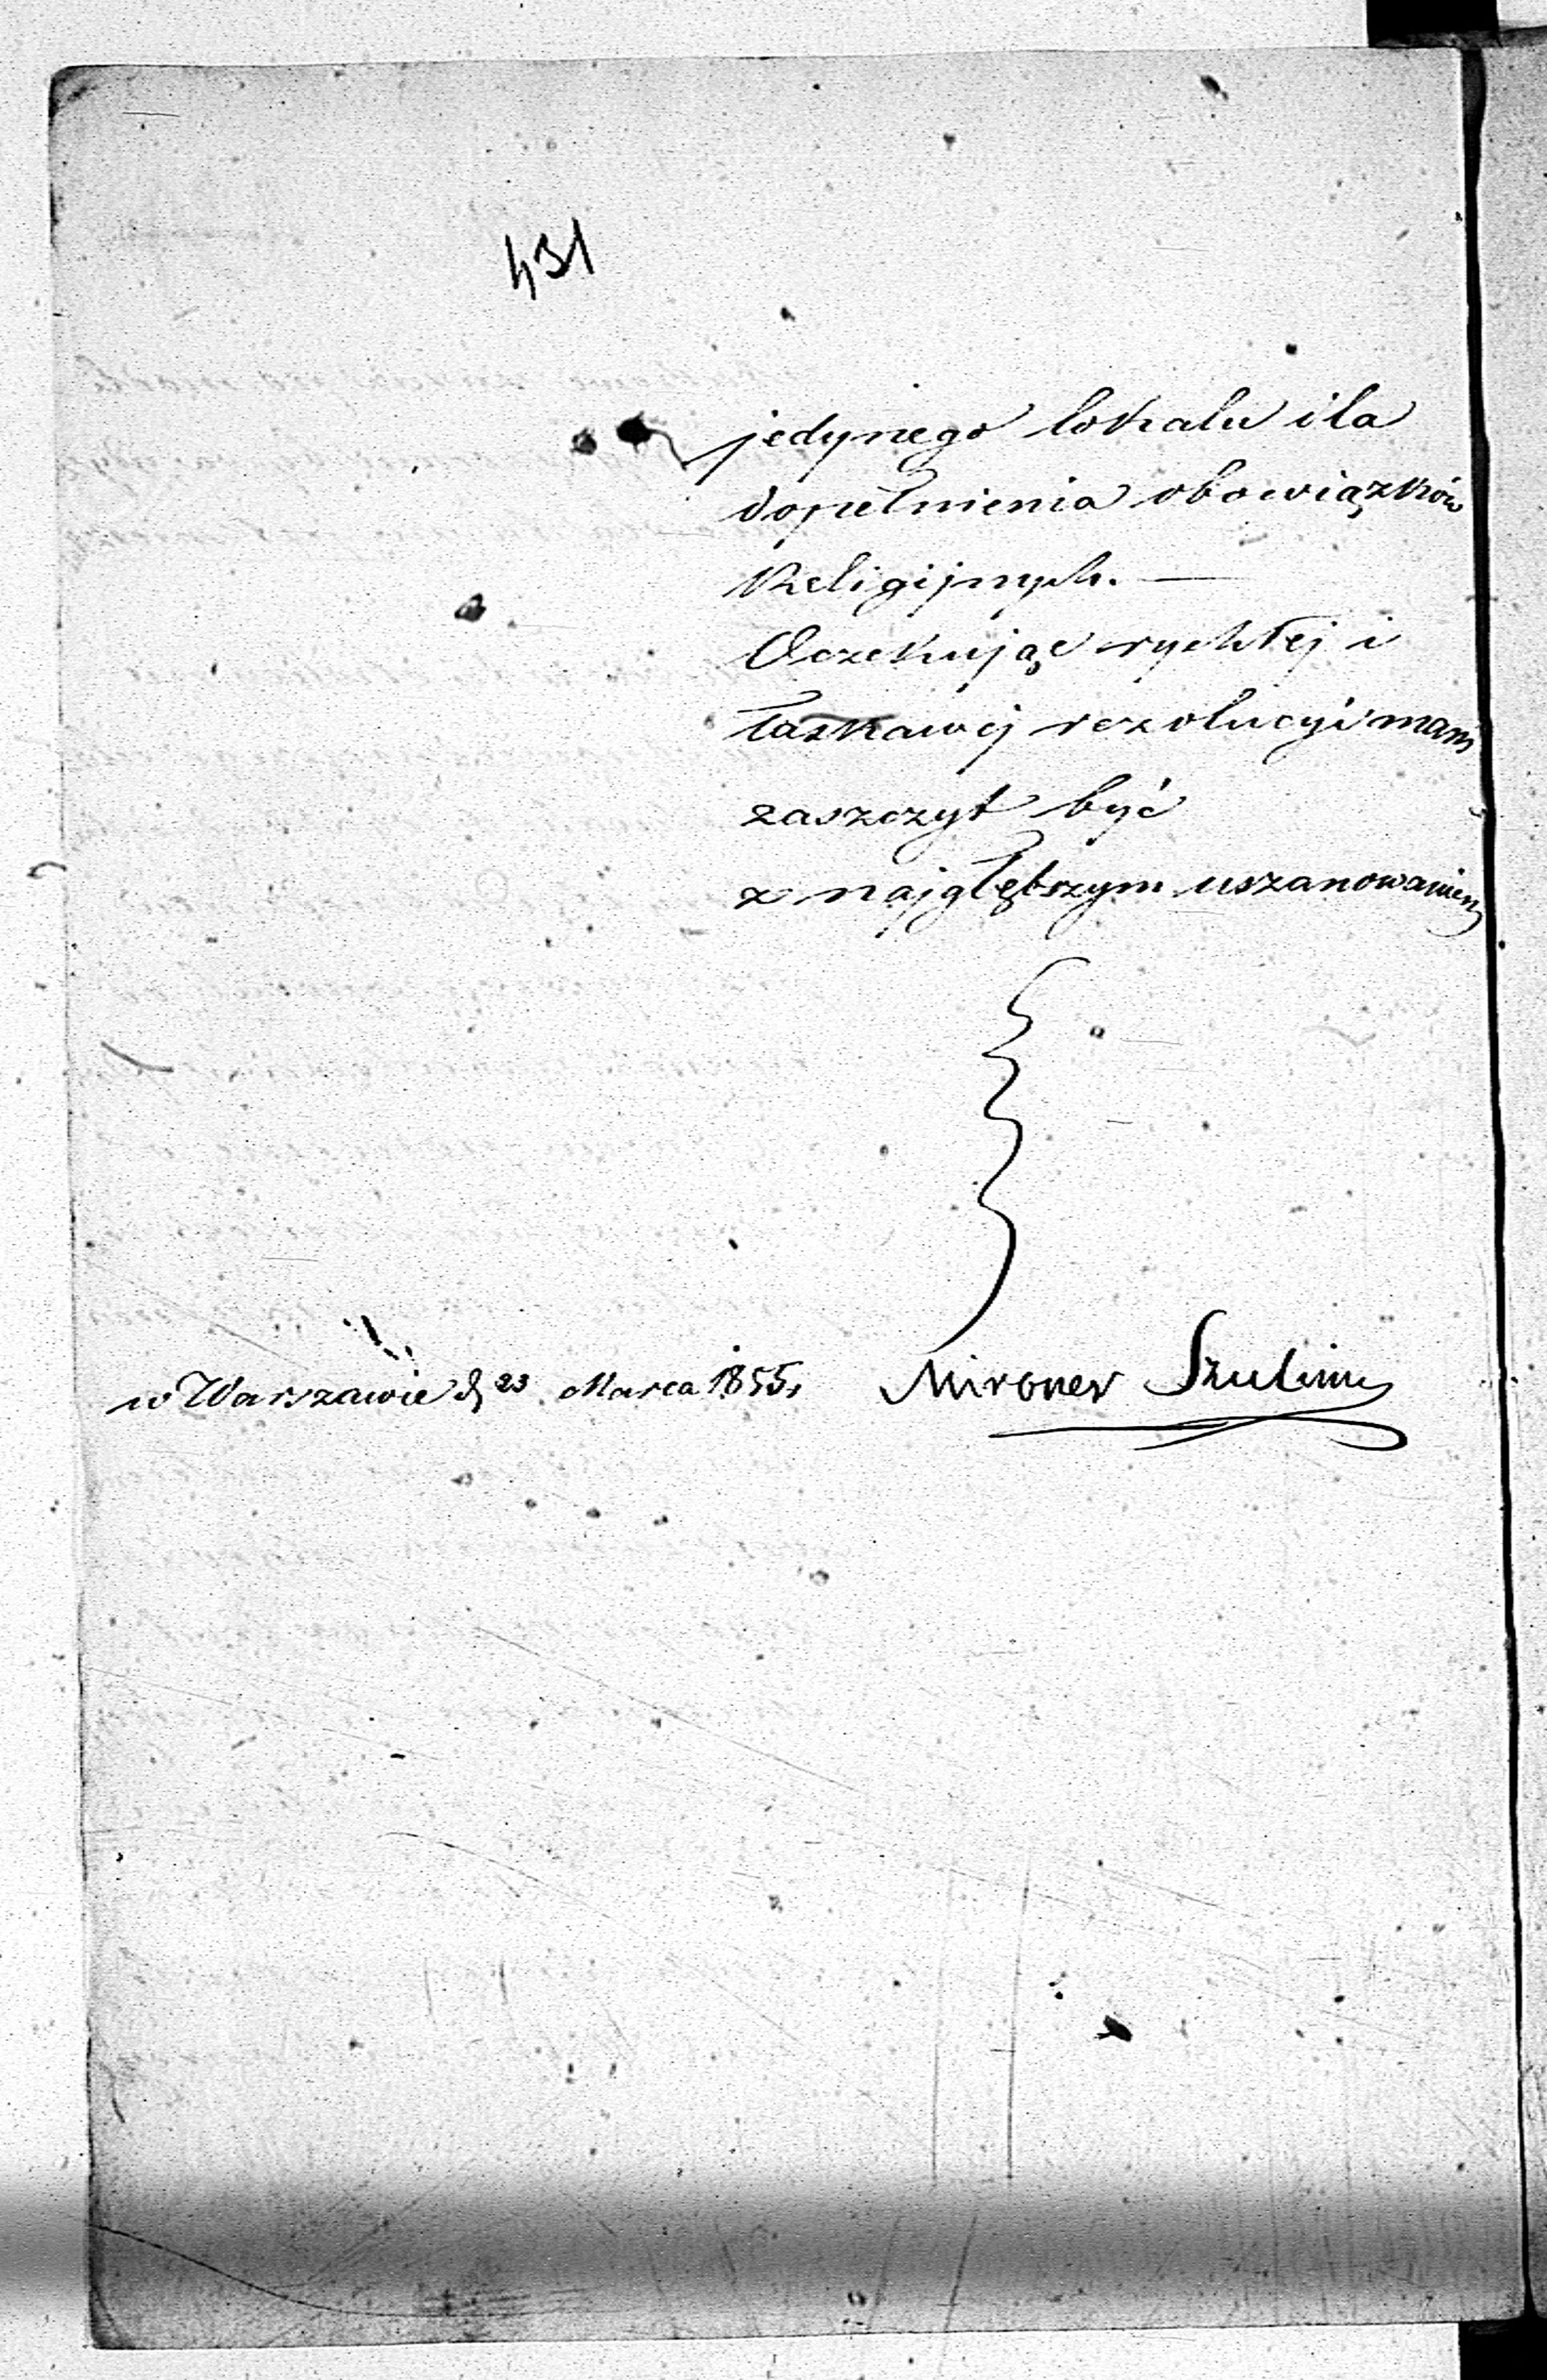 431
jedynego lokalu dla
dopełnienia obowiązków
Religijnych. —
Oczekując rychłej i
łaskawej rezolucyi mam
zaszczyt być
z najgłębszym uszanowaniem
w Warszawie d 23 Marca 1855, Mironer Szulim